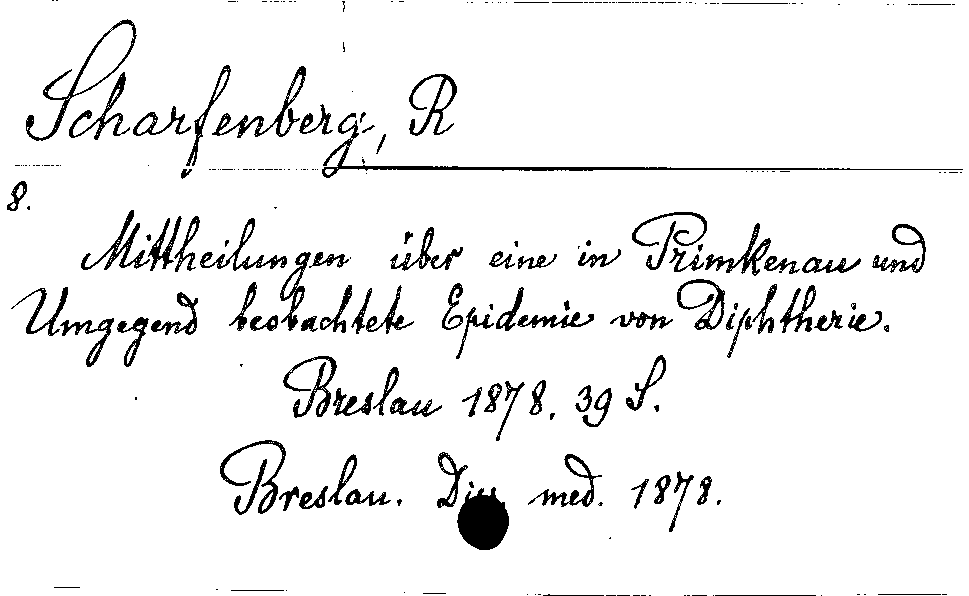 Scharfenberg, R
8.
Mittheilungen über eine in Primkenau und
Umgegend beobachtete Epidemie von Diphtherie.
Breslau 1878. 39 S.
Breslau. Diss med. 1878.